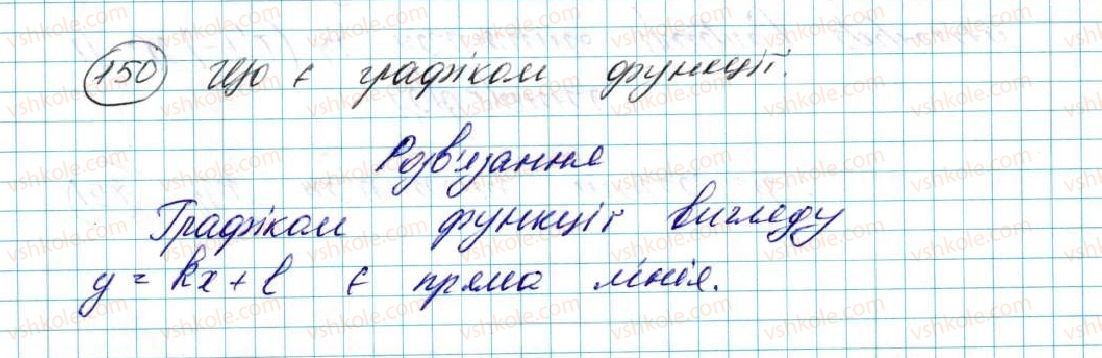 150 Що є графіком функції.
Розв'язання
Графіком функції вигляду
y = kx + l є пряма лінія.